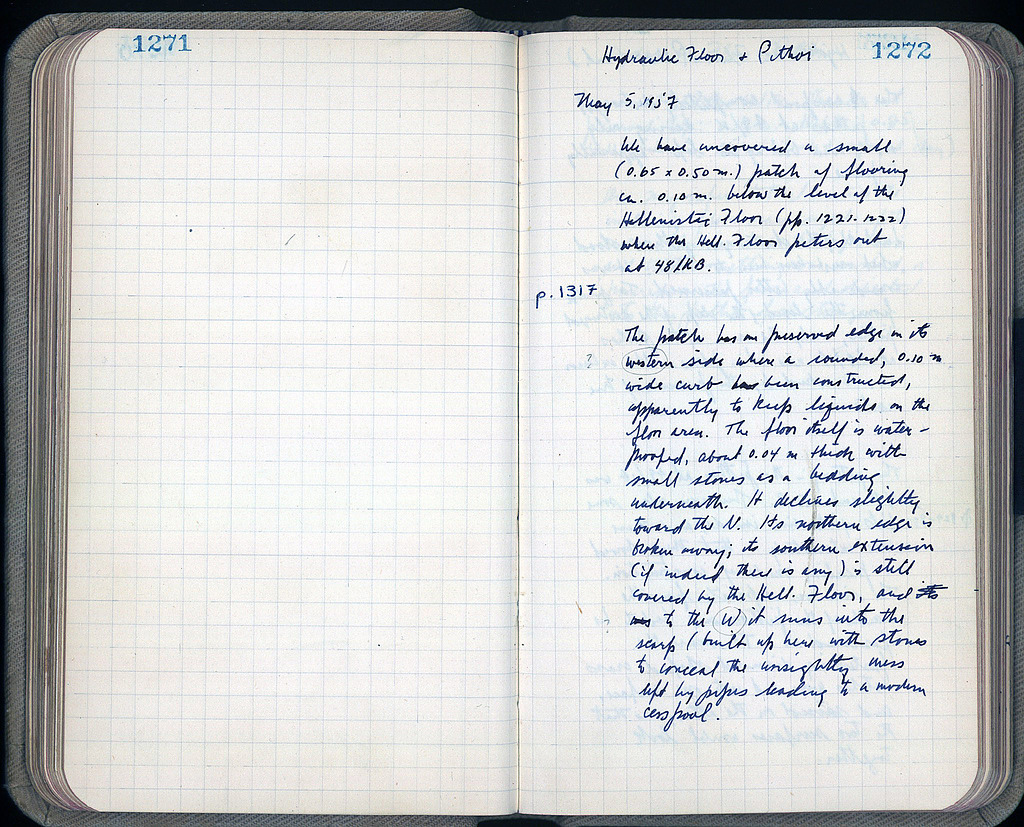 1271
Hydraulic Floor + Pithoi
1272
May 5, 1957
We have uncovered a small
(0.65 x 0.50 m.) patch of flooring
ca. 0.10 m. below the level of the
Hellenistic Floor (pp. 1221-1222)
where the Hell. Floor peters out
at 48/KB.
p. 1317
The patch has one preserved edge on its
? western side where a rounded, 0.10 m
wide curb has been constructed,
apparently to keep liquids on the
floor area. The floor itself is water-
proofed, about 0.04 m thick with
small stones as a bedding
underneath. It declines slightly
toward the N. Its northern edge is
broken away; its southern extension
(if indeed there is any) is still
covered by the Hell. Floor, and its
? to the W it runs into the
scarp (built up here with stones
to conceal the unsightly mess
left by pipes leading to a modern
cesspool.